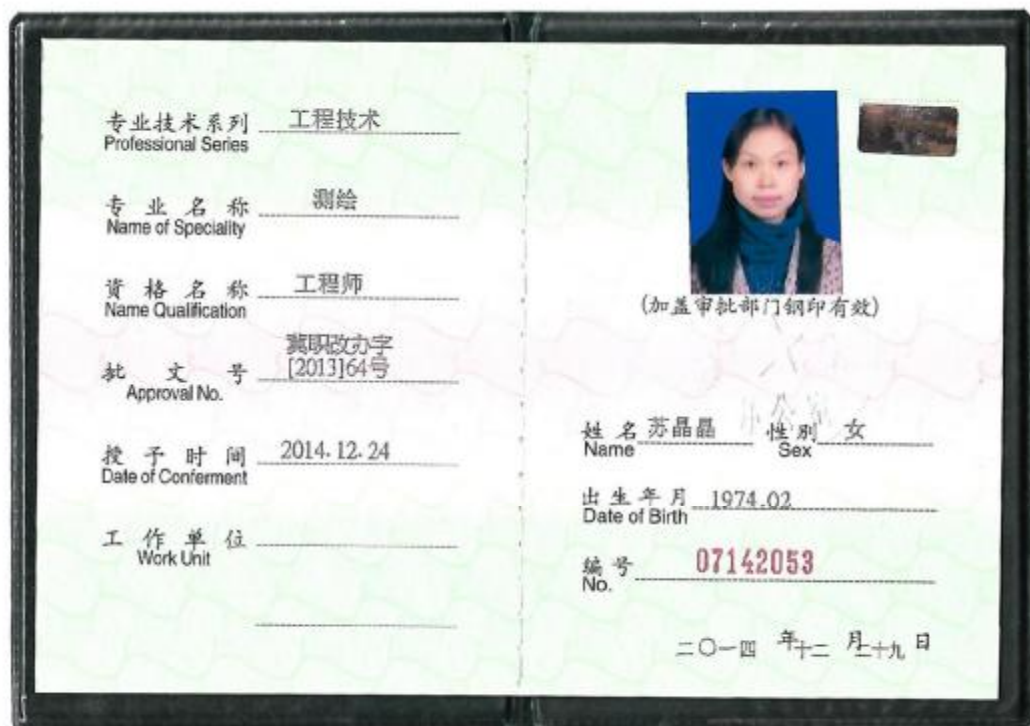 专业技术系列 工程技术
Professional Series
专业名称 测绘
Name of Speciality
资格名称 工程师
Name Qualification
冀职改办字
批文号 [2013]64号
Approval No.
授予时间 2014.12.24
Date of Conferment
工作单位
Work Unit
(加盖审批部门钢印有效)
姓名 苏晶晶 性别 女
Name Sex
出生年月 1974.02
Date of Birth
编号 07142053
No.
二〇一四 年十二 月二十九 日